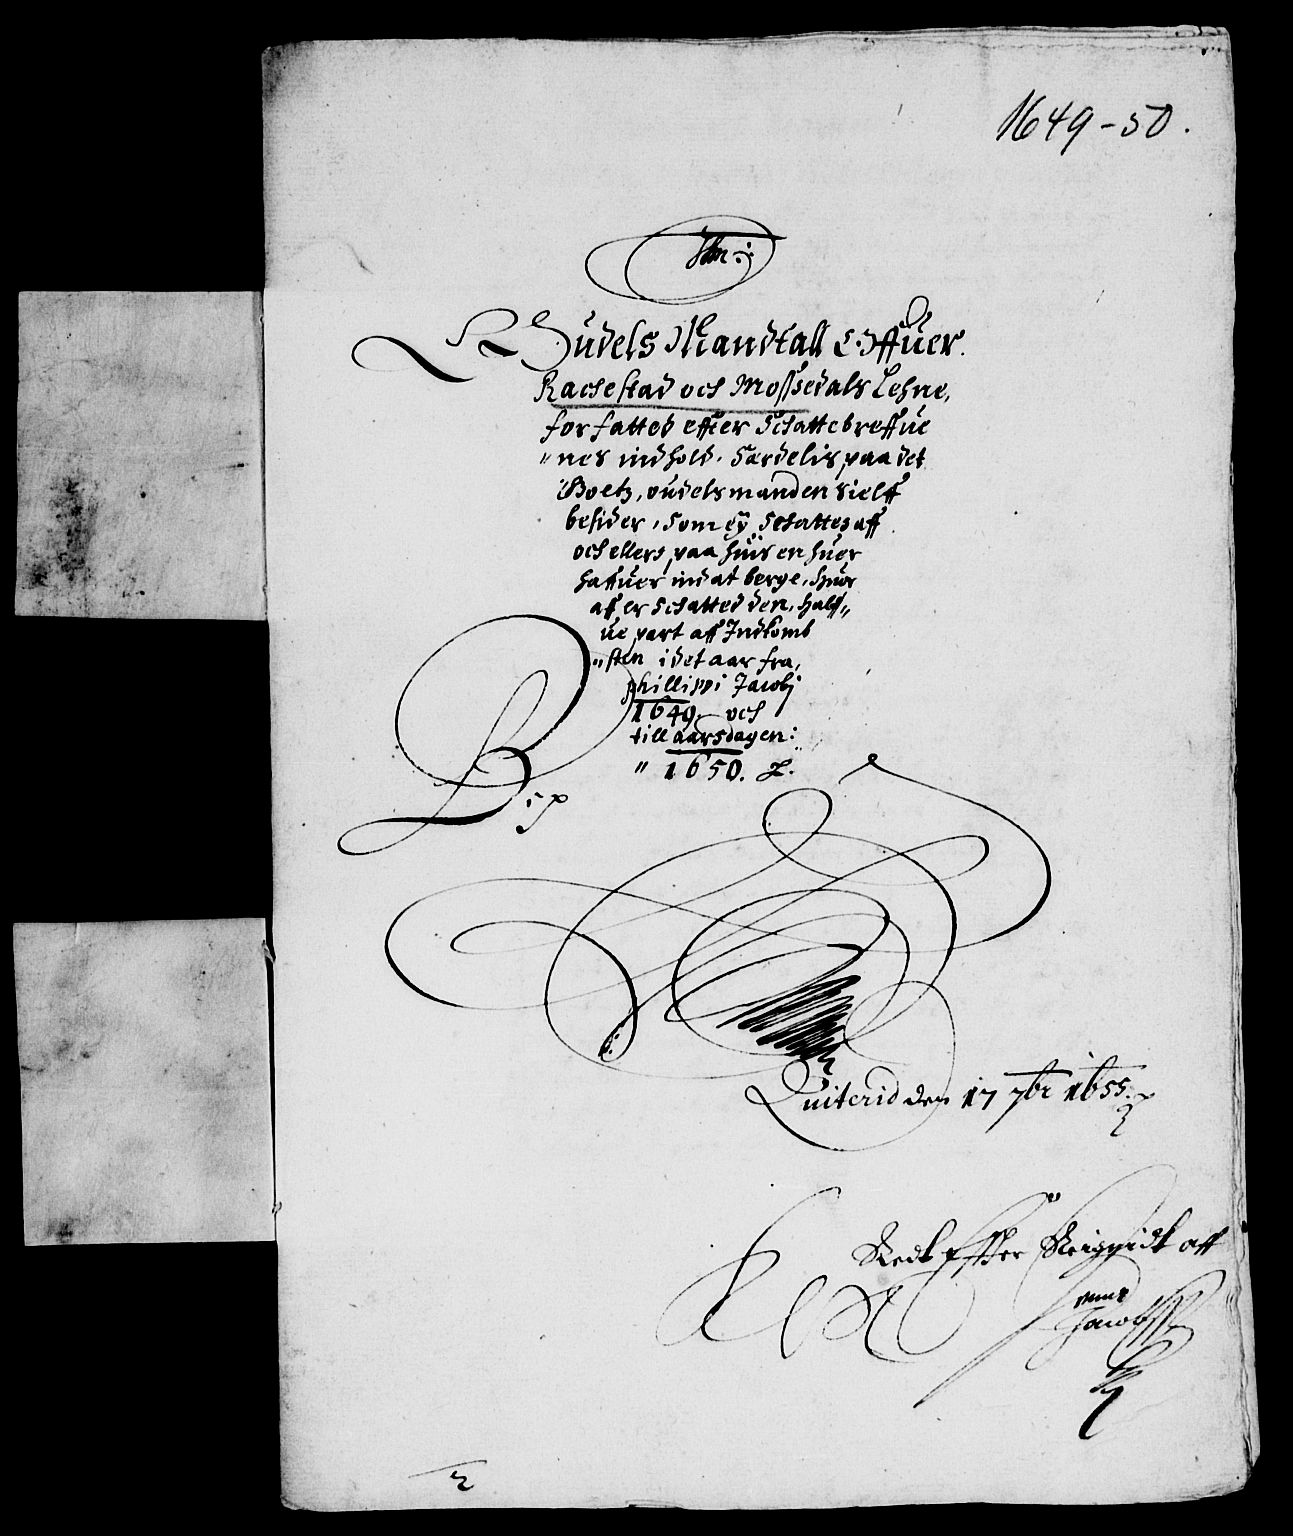 1649-50.
Oudels Mandtall Offuer
Rachestad och Mossedals Lehne,
forfatted effter Schattebreffue
"nes indhold. Særdelis paa det
Goetz, oudelsmanden sielff
besider, som ey Schattes aff
och ellers paa huis en huer
haffuer ind at berge, huor
aff er Schatted den, halff„
ue part aff Indkomb
"sten i det aar fra,
phillippi Jacobj
1649. och
till aarsdagen:
" 1650.
Quiterid den 17 7br 1655.
Effter
aff
Jacobss